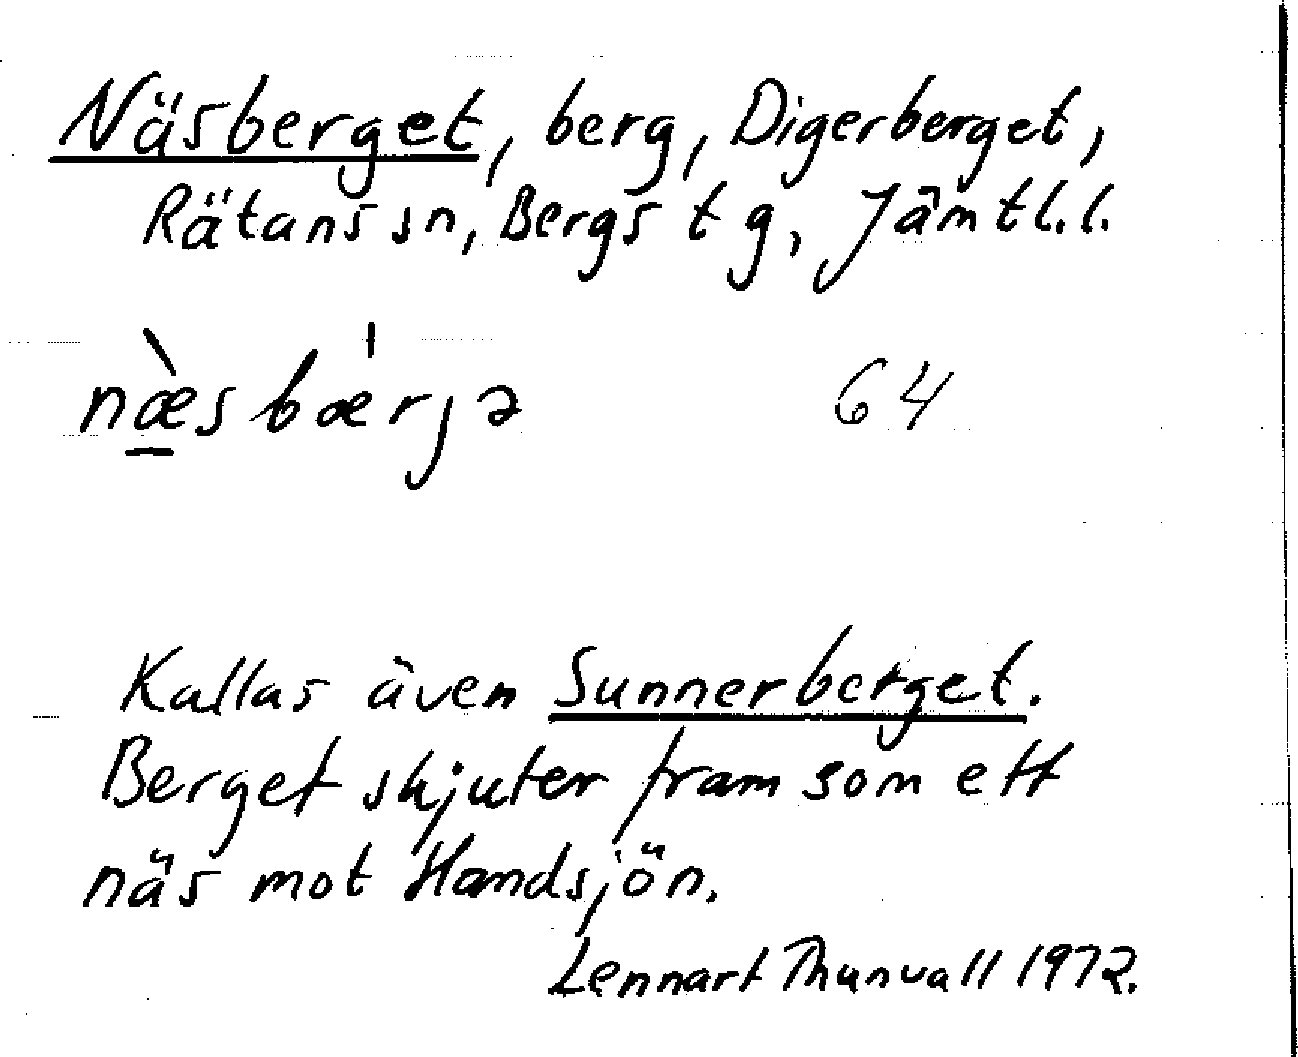 Näsberget, berg, Digerberget,
Rätans sn, Bergs tg, Jämtl.l.
næ̀sbær̍jə 64
Kallas även Sunnerberget.
Berget skjuter fram som ett
näs mot Handsjön.
Lennart Thunvall 1972.